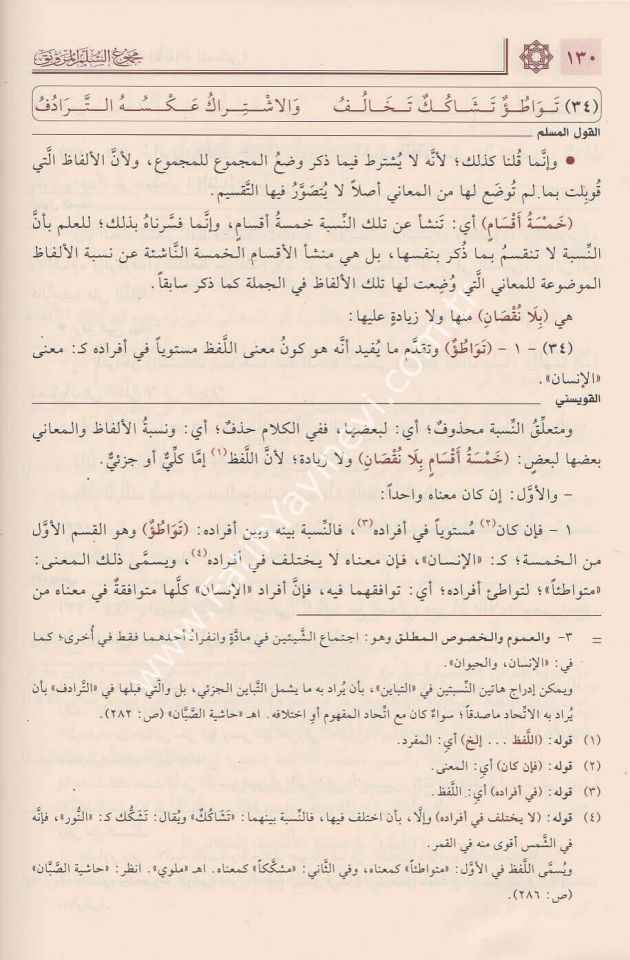 ١٣٠
مجموع السلم المرونق
(٣٤) تَوَاطُؤٌ تَشَاكُكٌ تَخَالُفُ وَالاشْتِرَاكُ عَكْسُهُ التَّرَادُفُ
القول المسلم
• وإنَّما قُلنا كذلك؛ لأنَّه لا يُشترط فيما ذكر وضعُ المجموع للمجموع، ولأنَّ الألفاظ الَّتي
قُوبِلت بما لم تُوضَع لها من المعاني أصلاً لا يُتصَوَّرُ فيها التَّقسيم.
(خَمْسَةُ أَقْسَامٍ) أي: تَنشأ عن تلك النِّسبة خمسةُ أقسامٍ، وإنَّما فسَّرناهُ بذلك؛ للعلم بأنَّ
النِّسبة لا تنقسمُ بما ذُكر بنفسها، بل هي منشأ الأقسام الخمسة النَّاشئة عن نسبة الألفاظ
الموضوعة للمعاني الَّتي وُضِعت لها تلك الألفاظ في الجملة كما ذكر سابقاً.
هي (بِلَا نُقْصَانِ) منها ولا زيادةٍ عليها:
(٣٤) - ١ - (تَوَاطُؤٌ) وتقدَّم ما يُفيد أنَّه هو كونُ معنى اللَّفظ مستوياً في أفراده كـ: معنى
«الإنسان».
القويسني
ومتعلِّقُ النِّسبة محذوفٌ؛ أي: لبعضها، ففي الكلام حذفٌ؛ أي: ونسبةُ الألفاظ والمعاني
بعضها لبعضٍ: (خَمْسَةُ أَقْسَامٍ بِلَا نُقْصَانِ) ولا زيادة؛ لأنَّ اللَّفظ(١) إمَّا كلِّيٌّ أو جزئيٌّ.
- والأوَّل: إن كان معناه واحداً:
١ - فإن كان(٢) مُستوياً في أفراده(٣)، فالنِّسبة بينه وبين أفراده: (تَوَاطُؤٌ) وهو القسم الأوَّل
من الخمسة؛ كـ: «الإنسان»، فإن معناه لا يختلف في أفراده(٤)، ويسمَّى ذلك المعنى:
«متواطئاً»؛ لتواطئ أفراده؛ أي: توافقهما فيه، فإنَّ أفراد «الإنسان» كلَّها متوافقةٌ في معناه من
= ٣- والعموم والخصوص المطلق وهو: اجتماع الشَّيئين في مادَّةٍ وانفرادُ أحدهما فقط في أُخرى؛ كما
في: «الإنسان، والحيوان».
ويمكن إدراج هاتين النِّسبتين في «التباين»، بأن يُراد به ما يشمل التَّباين الجزئي، بل والَّتي قبلها في «التَّرادف» بأن
يُراد به الاتِّحاد ماصدقاً؛ سواءٌ كان مع اتِّحاد المفهوم أو اختلافه. اهـ «حاشية الصَّبَّان» (ص: ٢٨٢).
(١) قوله: (اللَّفظ ... إلخ) أي: المفرد.
(٢) قوله: (فإن كان) أي: المعنى.
(٣) قوله: (في أفراده) أي: اللَّفظ.
(٤) قوله: (لا يختلف في أفراده) وإلَّا، بأن اختلف فيها، فالنِّسبة بينهما: «تَشَاكُكٌ» ويُقال: تَشَكُّك كـ: «النُّور»، فإنَّه
في الشَّمس أقوى منه في القمر.
ويُسمَّى اللَّفظ في الأوَّل: «متواطئاً» كمعناه، وفي الثَّاني: «مشكِّكاً» كمعناه. اهـ «ملوي». انظر: «حاشية الصَّبَّان»
(ص: ٢٨٦).
www.fatihyayinevi.com.tr